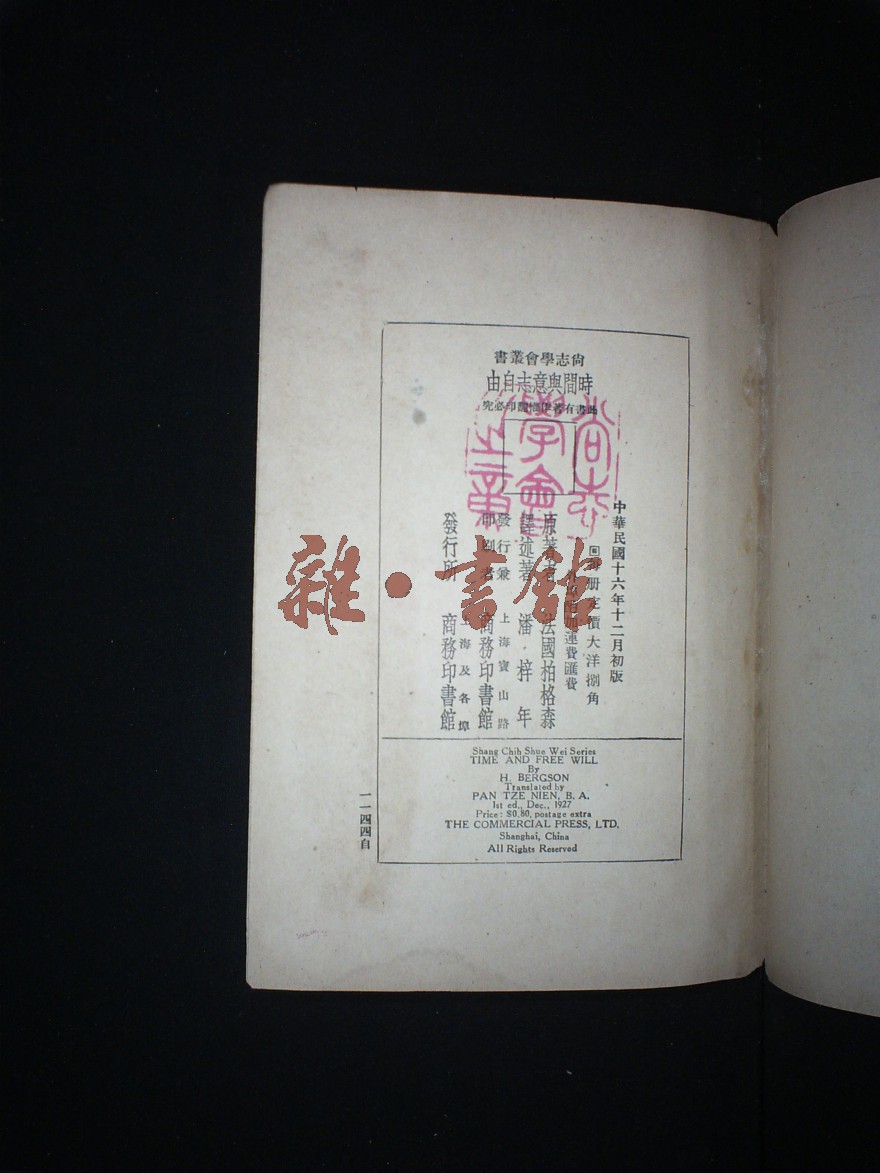 尙志學會叢書
時間與意志自由
此書有著作權翻印必究
尚志
學會
之章
中華民國十六年十二月初版
每冊定價大洋捌角
運費匯費
原著者 法國柏格森
譯述著 潘梓年
發行兼
印刷者
上海寶山路
商務印書館
發行所
上海及各埠
商務印書館
雜·書館
Shang Chih Shue Wei Series
TIME AND FREE WILL
By
H. BERGSON
Translated by
PAN TZE NIEN, B. A.
1st ed., Dec., 1927
Price: $0.80, postage extra
THE COMMERCIAL PRESS, LTD.
Shanghai, China
All Rights Reserved
一一四四自